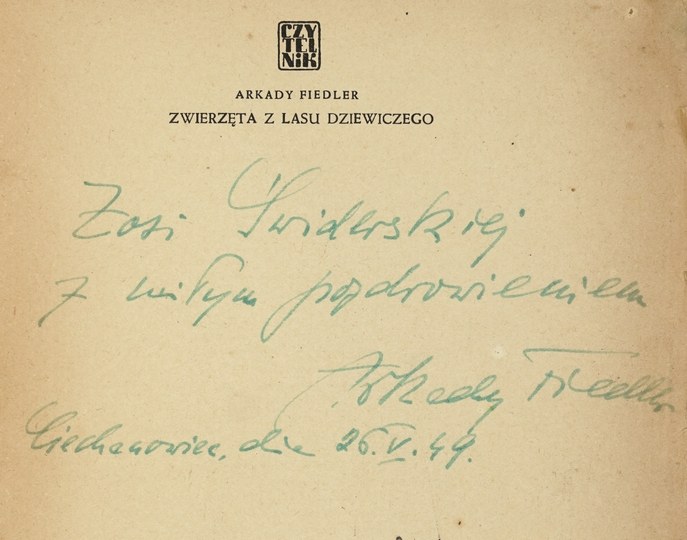 CZY
TEL
NiK
ARKADY FIEDLER
ZWIERZĘTA Z LASU DZIEWICZEGO
Zosi Świderskiej
z miłym pozdrowieniem
Arkady Fiedler
Ciechanowiec, dn. 26.V.49.